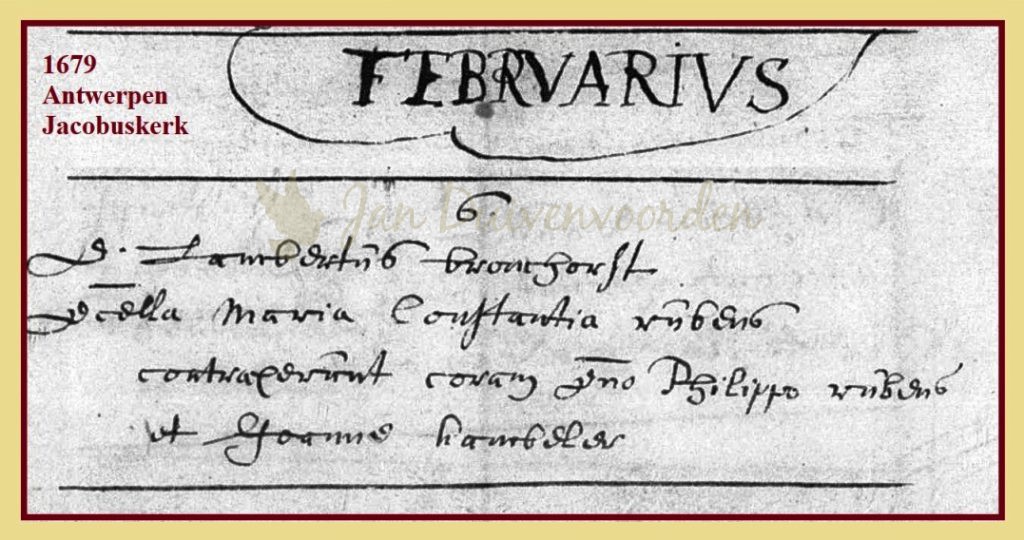 1679
Antwerpen
Jacobuskerk
FEBRVARIVS
Jan Duivenvoorden
6
D. Lambertus bronchorst
Dcella Maria Constantia rubens
contraxerunt coram Dno Philippo rubens
et Joanne